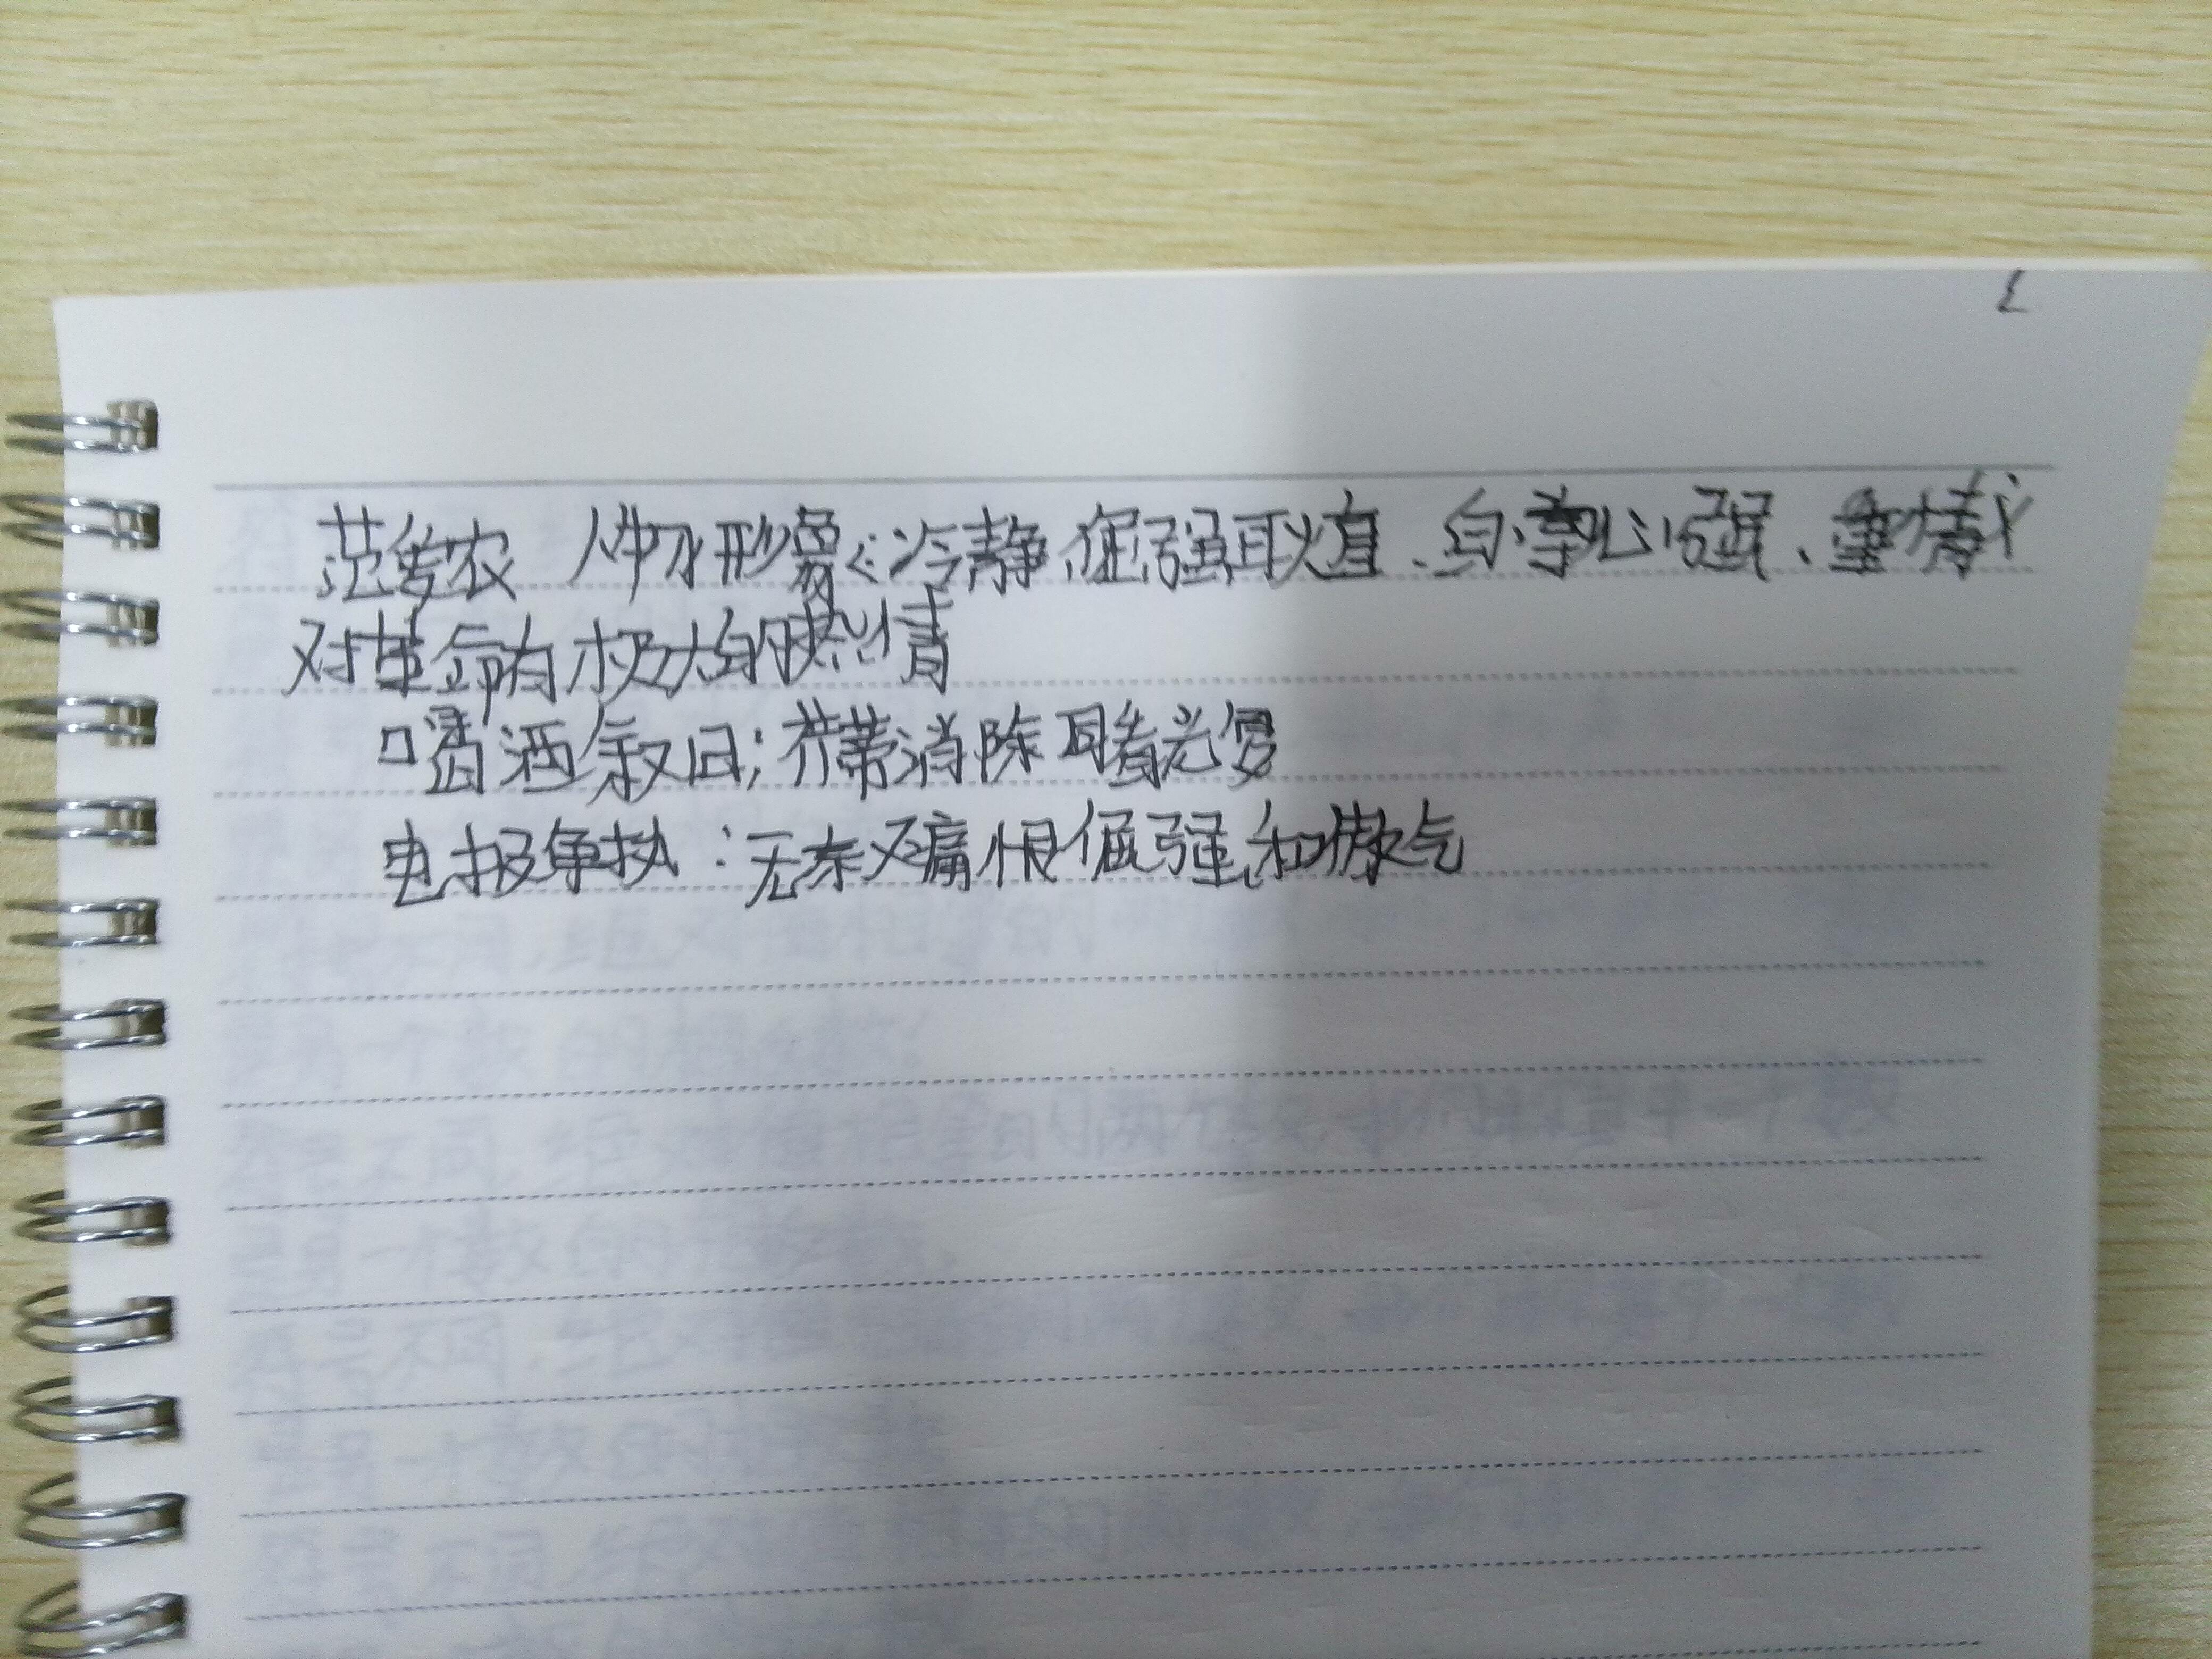 范爱农 人物形象:冷静、倔强耿直、自尊心强、重情义
对革命有极大的热情
喝酒叙旧;芥蒂消除
电报争执:无奈又痛恨倔强和傲气